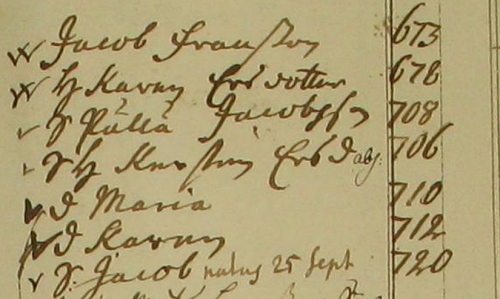 Jacob Fransson 673
H Karin Ersdotter 678
S Pålla Jacobsson 708
S H Kerstin Ersd 706
D Maria 710
D Karin 712
S. Jacob natus 25 Sept 720